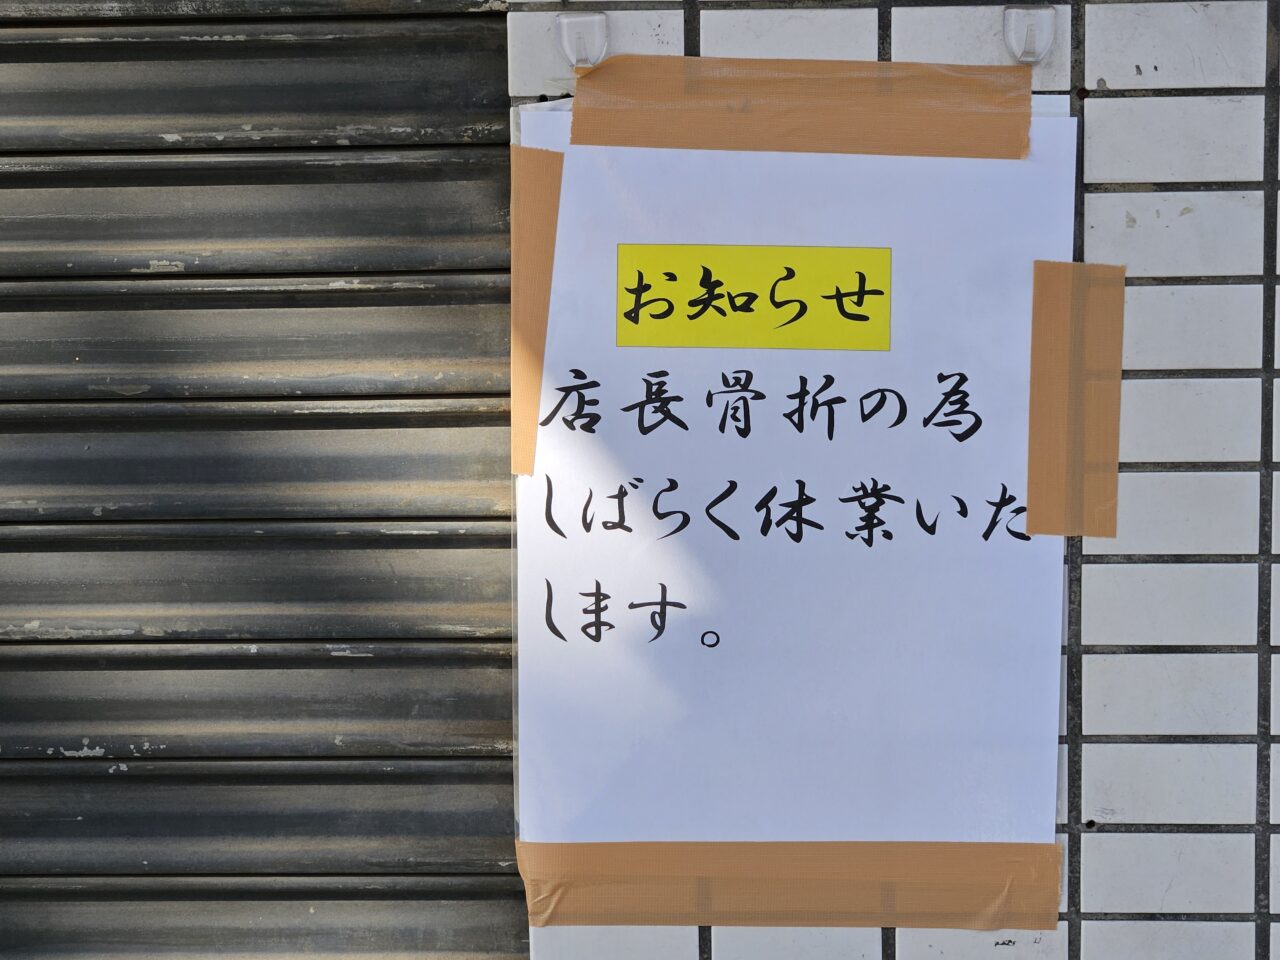 お知らせ
店長骨折の為
しばらく休業いた
します。